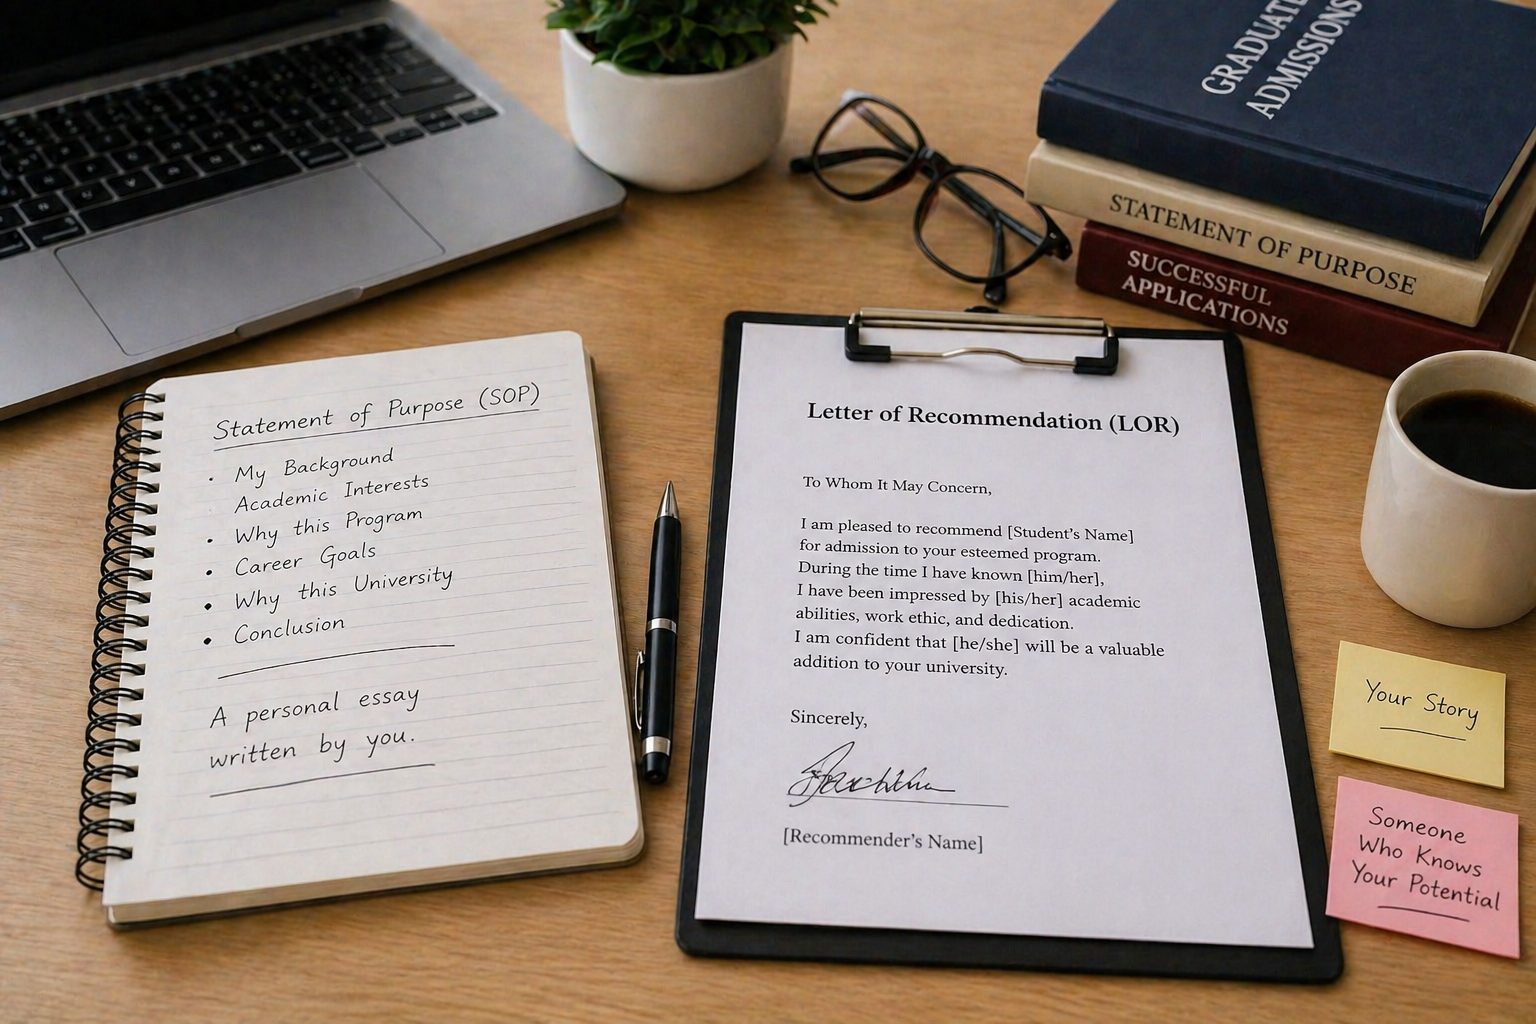 Statement of Purpose (SOP)
· My Background
Academic Interests
• Why this Program
• Career Goals
• Why this University
• Conclusion
A personal essay
written by you.
Letter of Recommendation (LOR)
To Whom It May Concern,
I am pleased to recommend [Student's Name]
for admission to your esteemed program.
During the time I have known [him/her],
I have been impressed by [his/her] academic
abilities, work ethic, and dedication.
I am confident that [he/she] will be a valuable
addition to your university.
Sincerely,
[Recommender's Name]
GRADUATE
ADMISSIONS
STATEMENT OF PURPOSE
SUCCESSFUL
APPLICATIONS
Your Story
Someone
Who Knows
Your Potential